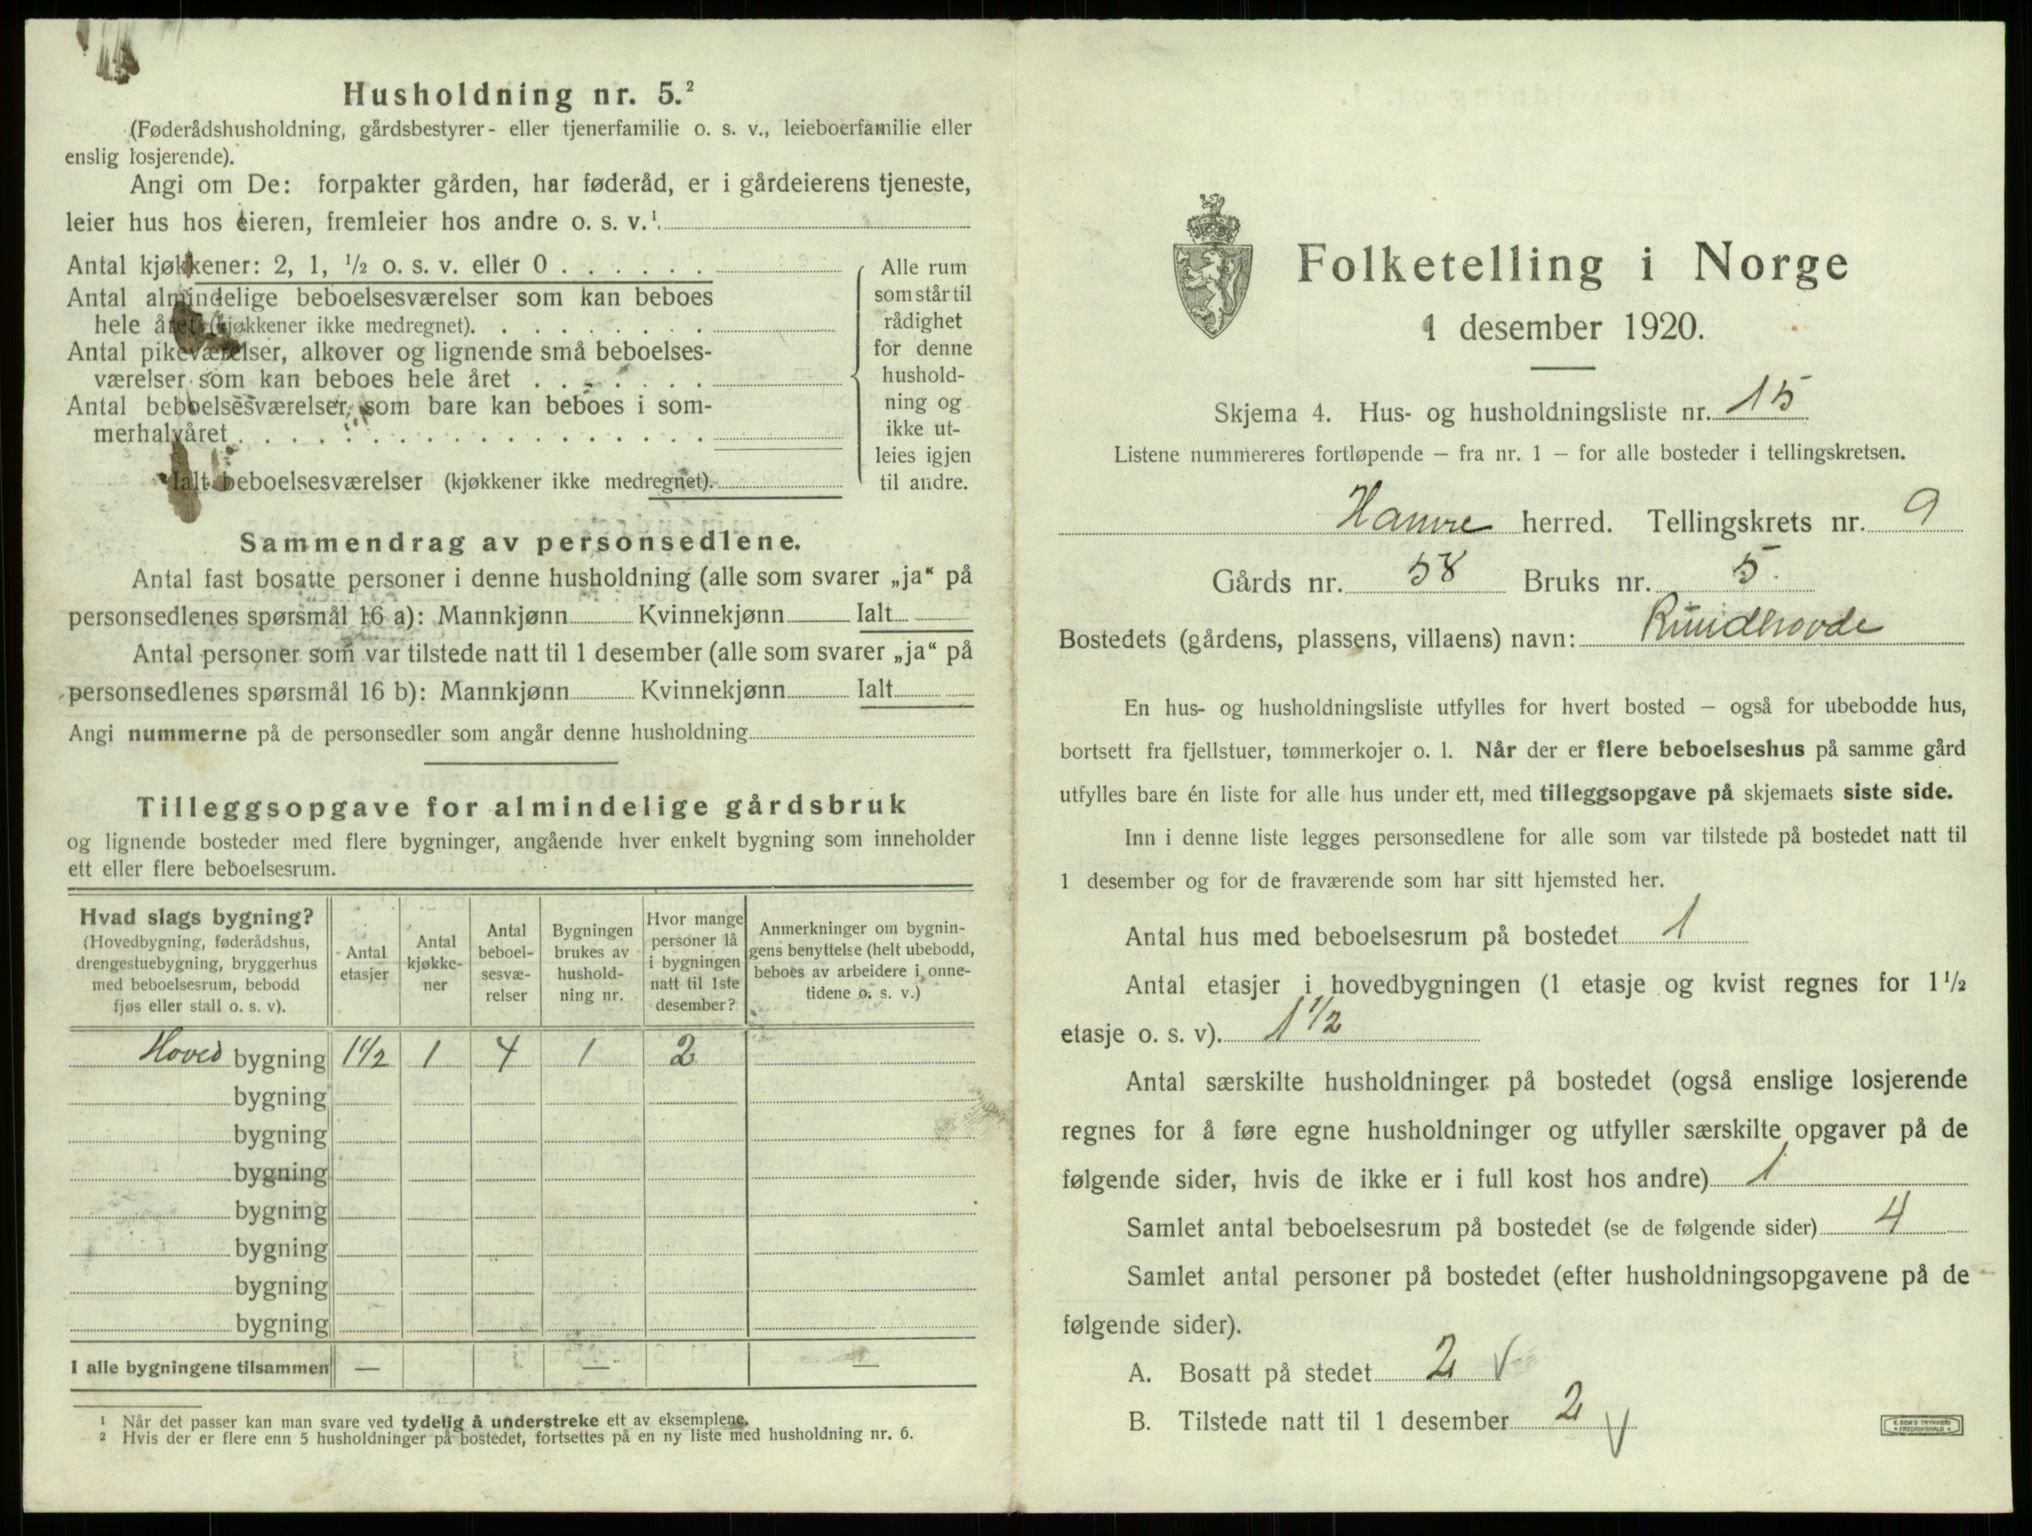 Husholdning nr. 5.²
(Føderådshusholdning, gårdsbestyrer- eller tjenerfamilie o. s. v., leieboerfamilie eller
enslig losjerende).
Angi om De: forpakter gården, har føderåd, er i gårdeierens tjeneste,
leier hus hos eieren, fremleier hos andre o. s. v.¹
Antal kjøkkener: 2, 1, ½ o. s. v. eller 0
Antal almindelige beboelsesværelser som kan beboes
hele året (kjøkkener ikke medregnet).
Antal pikeværelser, alkover og lignende små beboelses-
værelser som kan beboes hele året
Antal beboelsesværelser, som bare kan beboes i som-
merhalvåret
Ialt beboelsesværelser (kjøkkener ikke medregnet).
Alle rum
som står til
rådighet
for denne
hushold-
ning og
ikke ut-
leies igjen
til andre.
Sammendrag av personsedlene.
Antal fast bosatte personer i denne husholdning (alle som svarer „ja“ på
personsedlenes spørsmål 16 a): Mannkjønn Kvinnekjønn Ialt
Antal personer som var tilstede natt til 1 desember (alle som svarer „ja“ på
personsedlenes spørsmål 16 b): Mannkjønn Kvinnekjønn Ialt
Angi nummerne på de personsedler som angår denne husholdning
Tilleggsopgave for almindelige gårdsbruk
og lignende bosteder med flere bygninger, angående hver enkelt bygning som inneholder
ett eller flere beboelsesrum.
Hvad slags bygning?
(Hovedbygning, føderådshus,
drengestuebygning, bryggerhus
med beboelsesrum, bebodd
fjøs eller stall o. s. v).
Antal
etasjer
Antal
kjøkke-
ner
Antal
beboel-
sesvæ-
relser
Bygningen
brukes av
hushold-
ning nr.
Hvor mange
personer lå
i bygningen
natt til 1ste
desember?
Anmerkninger om bygnin-
gens benyttelse (helt ubebodd,
beboes av arbeidere i onne-
tidene o. s. v.)
Hoved bygning 1½ 1 4 1 2
bygning
bygning
bygning
bygning
bygning
bygning
bygning
I alle bygningene tilsammen — — —
¹ Når det passer kan man svare ved tydelig å understreke ett av eksemplene.
² Hvis der er flere enn 5 husholdninger på bostedet, fortsettes på en ny liste med husholdning nr. 6.
Folketelling i Norge
1 desember 1920.
Skjema 4. Hus- og husholdningsliste nr. 15
Listene nummereres fortløpende – fra nr. 1 – for alle bosteder i tellingskretsen.
Hamre herred. Tellingskrets nr. 9
Gårds nr. 58 Bruks nr. 5.
Bostedets (gårdens, plassens, villaens) navn: Rundhovde
En hus- og husholdningsliste utfylles for hvert bosted – også for ubebodde hus,
bortsett fra fjellstuer, tømmerkojer o. l. Når der er flere beboelseshus på samme gård
utfylles bare én liste for alle hus under ett, med tilleggsopgave på skjemaets siste side.
Inn i denne liste legges personsedlene for alle som var tilstede på bostedet natt til
1 desember og for de fraværende som har sitt hjemsted her.
Antal hus med beboelsesrum på bostedet 1
Antal etasjer i hovedbygningen (1 etasje og kvist regnes for 1½
etasje o. s. v). 1½
Antal særskilte husholdninger på bostedet (også enslige losjerende
regnes for å føre egne husholdninger og utfyller særskilte opgaver på de
følgende sider, hvis de ikke er i full kost hos andre) 1
Samlet antal beboelsesrum på bostedet (se de følgende sider) 4
Samlet antal personer på bostedet (efter husholdningsopgavene på de
følgende sider).
A. Bosatt på stedet 2 √
B. Tilstede natt til 1 desember 2 √
E. SEM'S TRYKKERI
FREDRIKSHALD